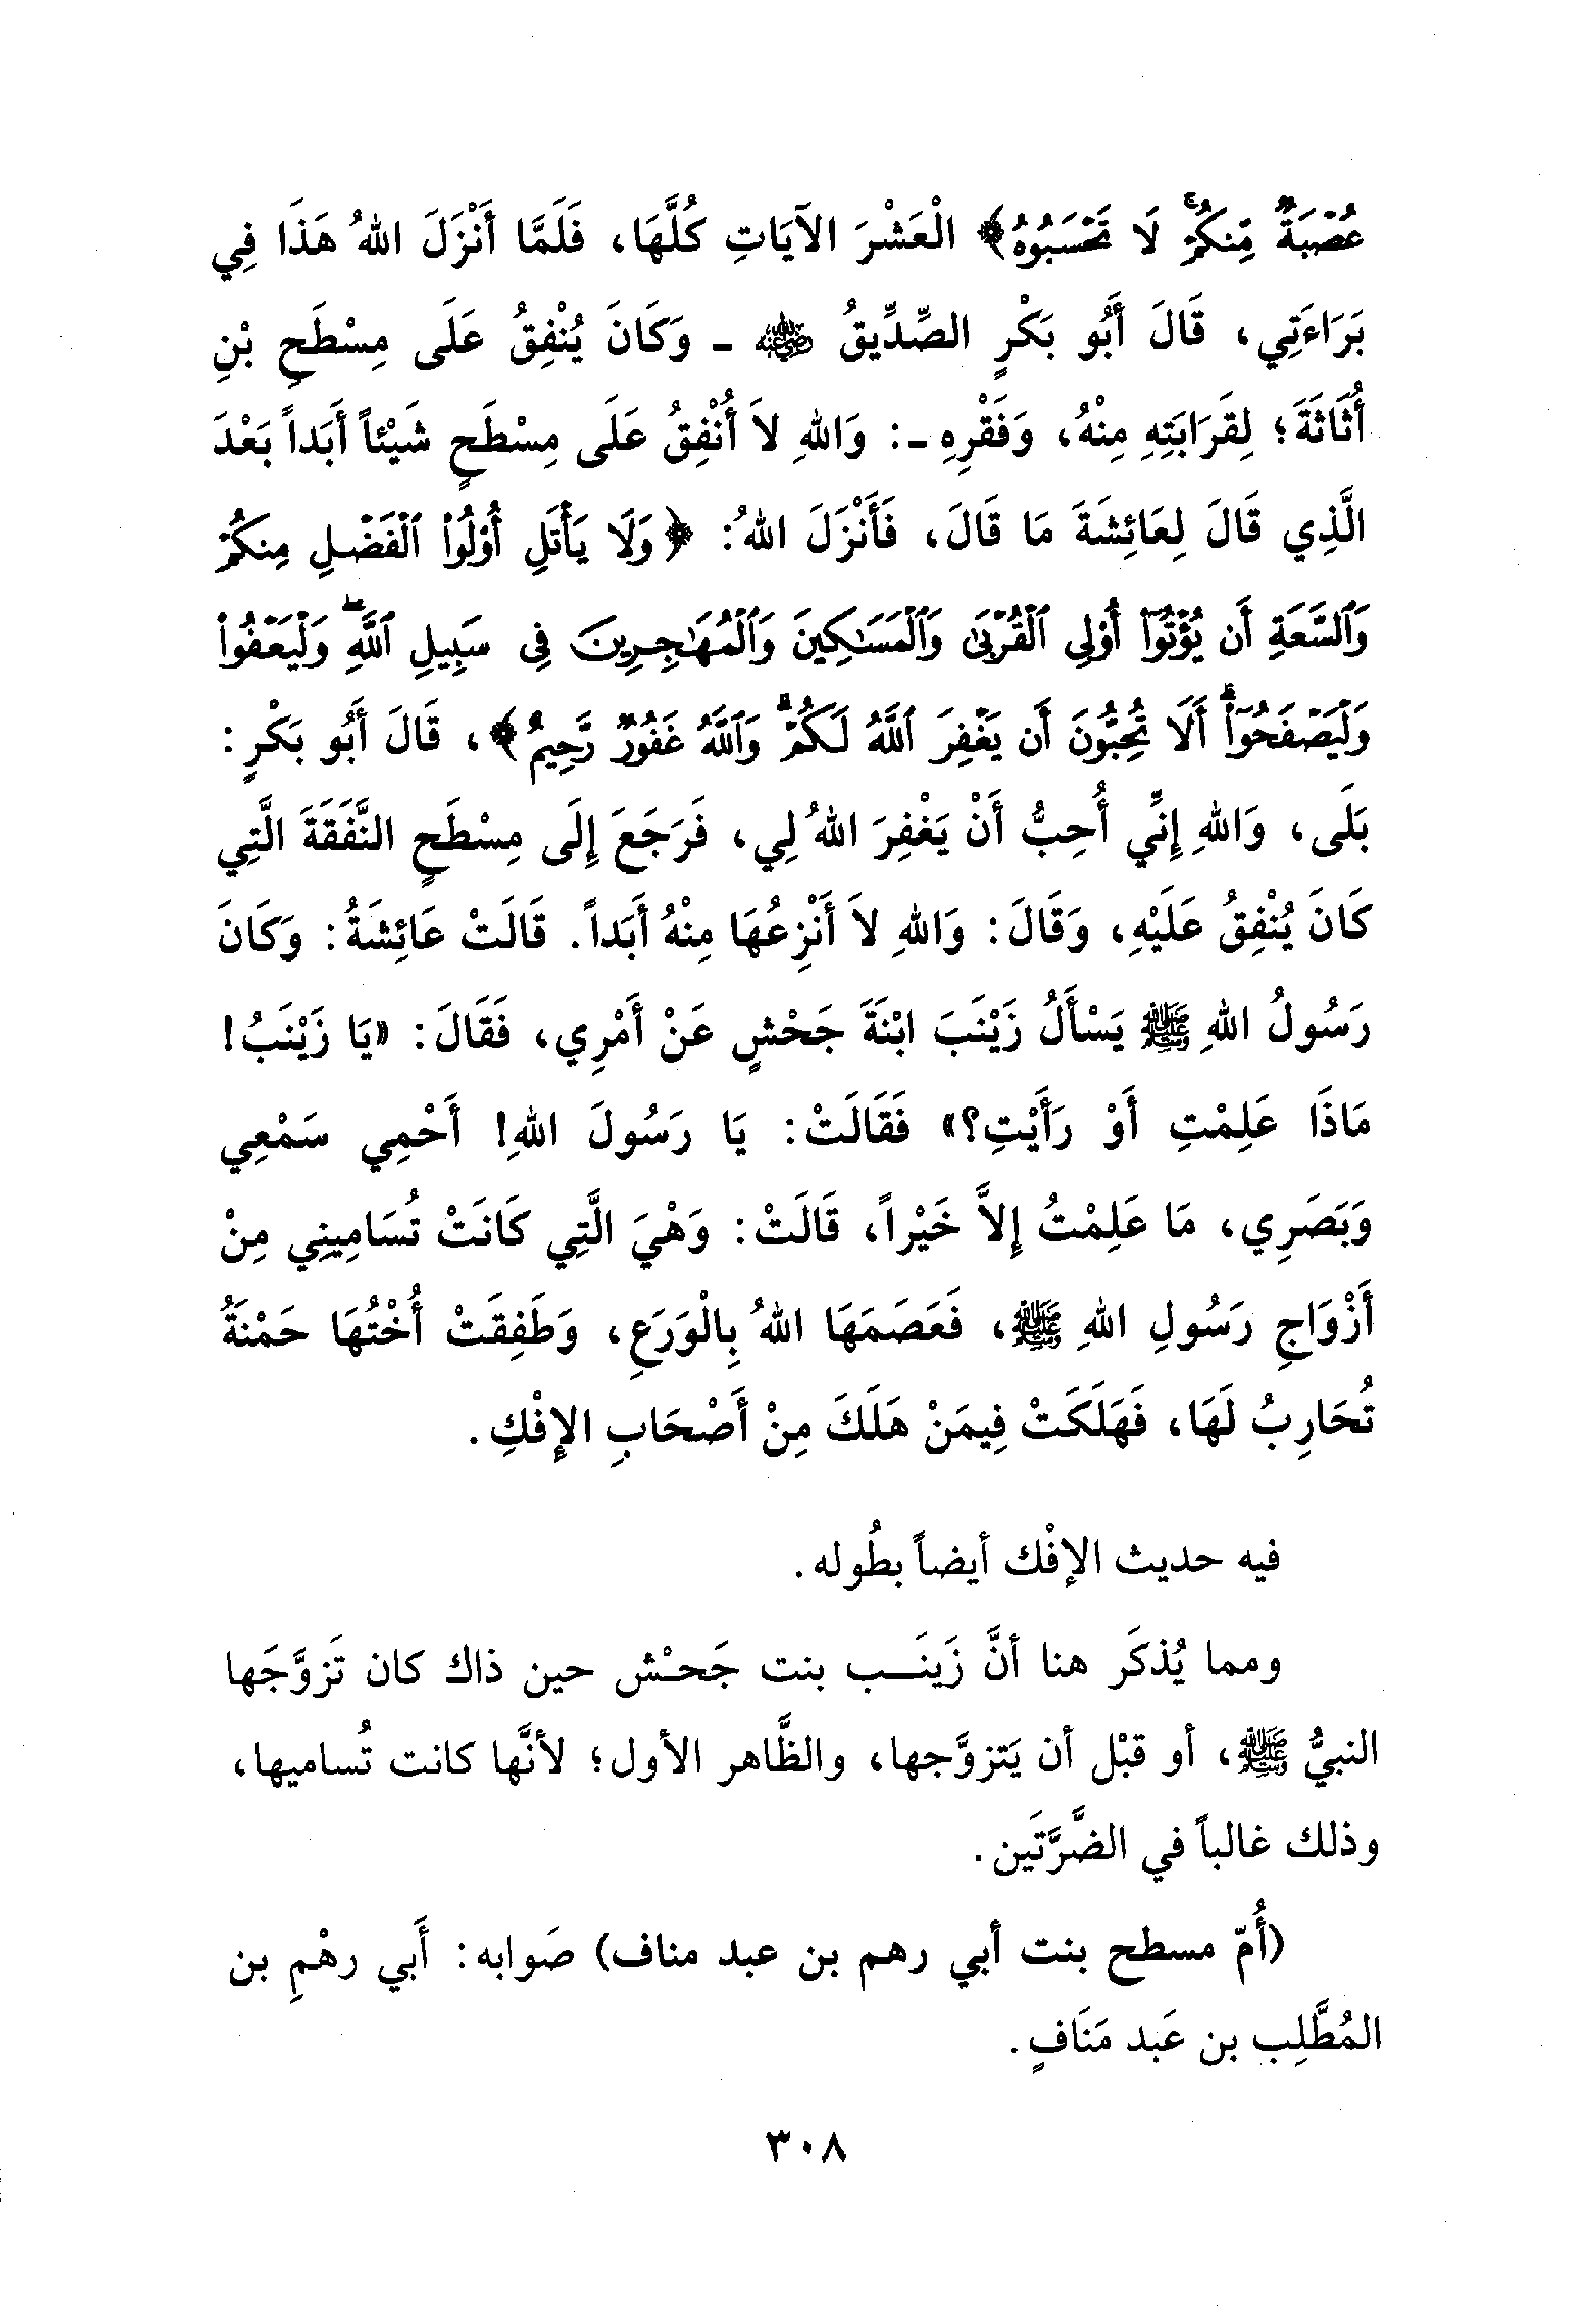 عُصْبَةٌ مِّنكُمْ ۚ لَا تَحْسَبُوهُ﴾ الْعَشْرَ الآيَاتِ كُلَّهَا، فَلَمَّا أَنْزَلَ اللهُ هَذَا فِي
بَرَاءَتِي، قَالَ أَبُو بَكْرٍ الصِّدِّيقُ رضي الله عنه ـ وَكَانَ يُنْفِقُ عَلَى مِسْطَحِ بْنِ
أُثَاثَةَ؛ لِقَرَابَتِهِ مِنْهُ، وَفَقْرِهِ ـ: وَاللهِ لاَ أُنْفِقُ عَلَى مِسْطَحٍ شَيْئاً أَبَداً بَعْدَ
الَّذِي قَالَ لِعَائِشَةَ مَا قَالَ، فَأَنْزَلَ اللهُ: ﴿وَلَا يَأْتَلِ أُو۟لُوا۟ ٱلْفَضْلِ مِنكُمْ
وَٱلسَّعَةِ أَن يُؤْتُوٓا۟ أُو۟لِى ٱلْقُرْبَىٰ وَٱلْمَسَـٰكِينَ وَٱلْمُهَـٰجِرِينَ فِى سَبِيلِ ٱللَّهِ ۖ وَلْيَعْفُوا۟
وَلْيَصْفَحُوٓا۟ ۗ أَلَا تُحِبُّونَ أَن يَغْفِرَ ٱللَّهُ لَكُمْ ۗ وَٱللَّهُ غَفُورٌ رَّحِيمٌ﴾، قَالَ أَبُو بَكْرٍ:
بَلَى، وَاللهِ إِنِّي أُحِبُّ أَنْ يَغْفِرَ اللهُ لِي، فَرَجَعَ إِلَى مِسْطَحٍ النَّفَقَةَ الَّتِي
كَانَ يُنْفِقُ عَلَيْهِ، وَقَالَ: وَاللهِ لاَ أَنْزِعُهَا مِنْهُ أَبَداً. قَالَتْ عَائِشَةُ: وَكَانَ
رَسُولُ اللهِ ﷺ يَسْأَلُ زَيْنَبَ ابْنَةَ جَحْشٍ عَنْ أَمْرِي، فَقَالَ: «يَا زَيْنَبُ!
مَاذَا عَلِمْتِ أَوْ رَأَيْتِ؟» فَقَالَتْ: يَا رَسُولَ اللهِ! أَحْمِي سَمْعِي
وَبَصَرِي، مَا عَلِمْتُ إِلاَّ خَيْراً، قَالَتْ: وَهْيَ الَّتِي كَانَتْ تُسَامِينِي مِنْ
أَزْوَاجِ رَسُولِ اللهِ ﷺ، فَعَصَمَهَا اللهُ بِالْوَرَعِ، وَطَفِقَتْ أُخْتُهَا حَمْنَةُ
تُحَارِبُ لَهَا، فَهَلَكَتْ فِيمَنْ هَلَكَ مِنْ أَصْحَابِ الإِفْكِ.
فيه حديث الإفْك أيضاً بطُوله.
ومما يُذكَر هنا أنَّ زَينَـب بنت جَحـْش حين ذاك كان تَزوَّجَها
النبيُّ ﷺ، أو قبْل أن يَتزوَّجها، والظَّاهر الأول؛ لأنَّها كانت تُساميها،
وذلك غالباً في الضَّرَّتَين.
(أُمّ مسطح بنت أبي رهم بن عبد مناف) صَوابه: أَبي رهْمِ بن
المُطَّلِب بن عَبد مَنَافٍ.
٣٠٨